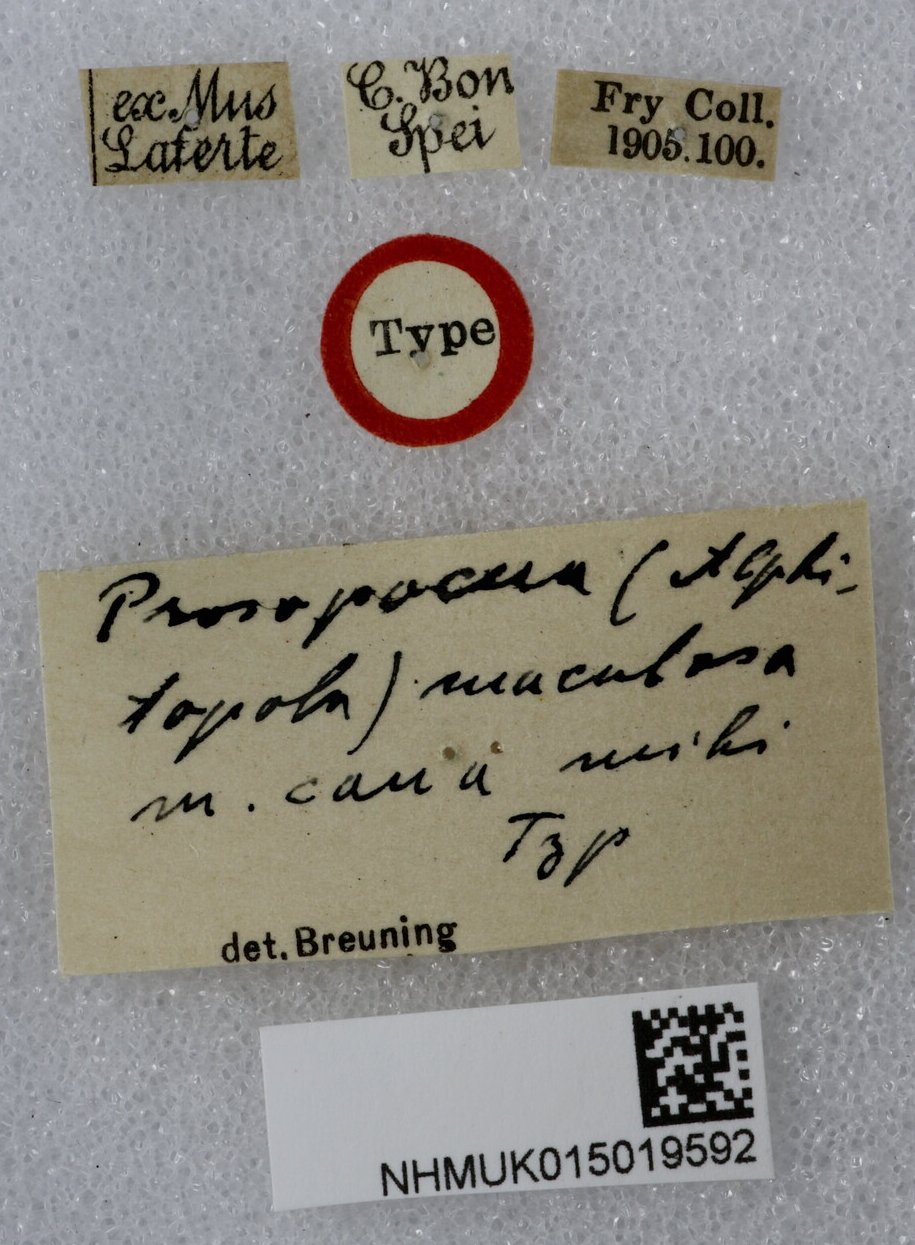 ex Mus
Laferte
C. Bon
Spei
Fry Coll.
1905.100.
Type
Prosopocera (Alphi-
topola) maculosa
m. cana mihi
Typ
det. Breuning
NHMUK015019592